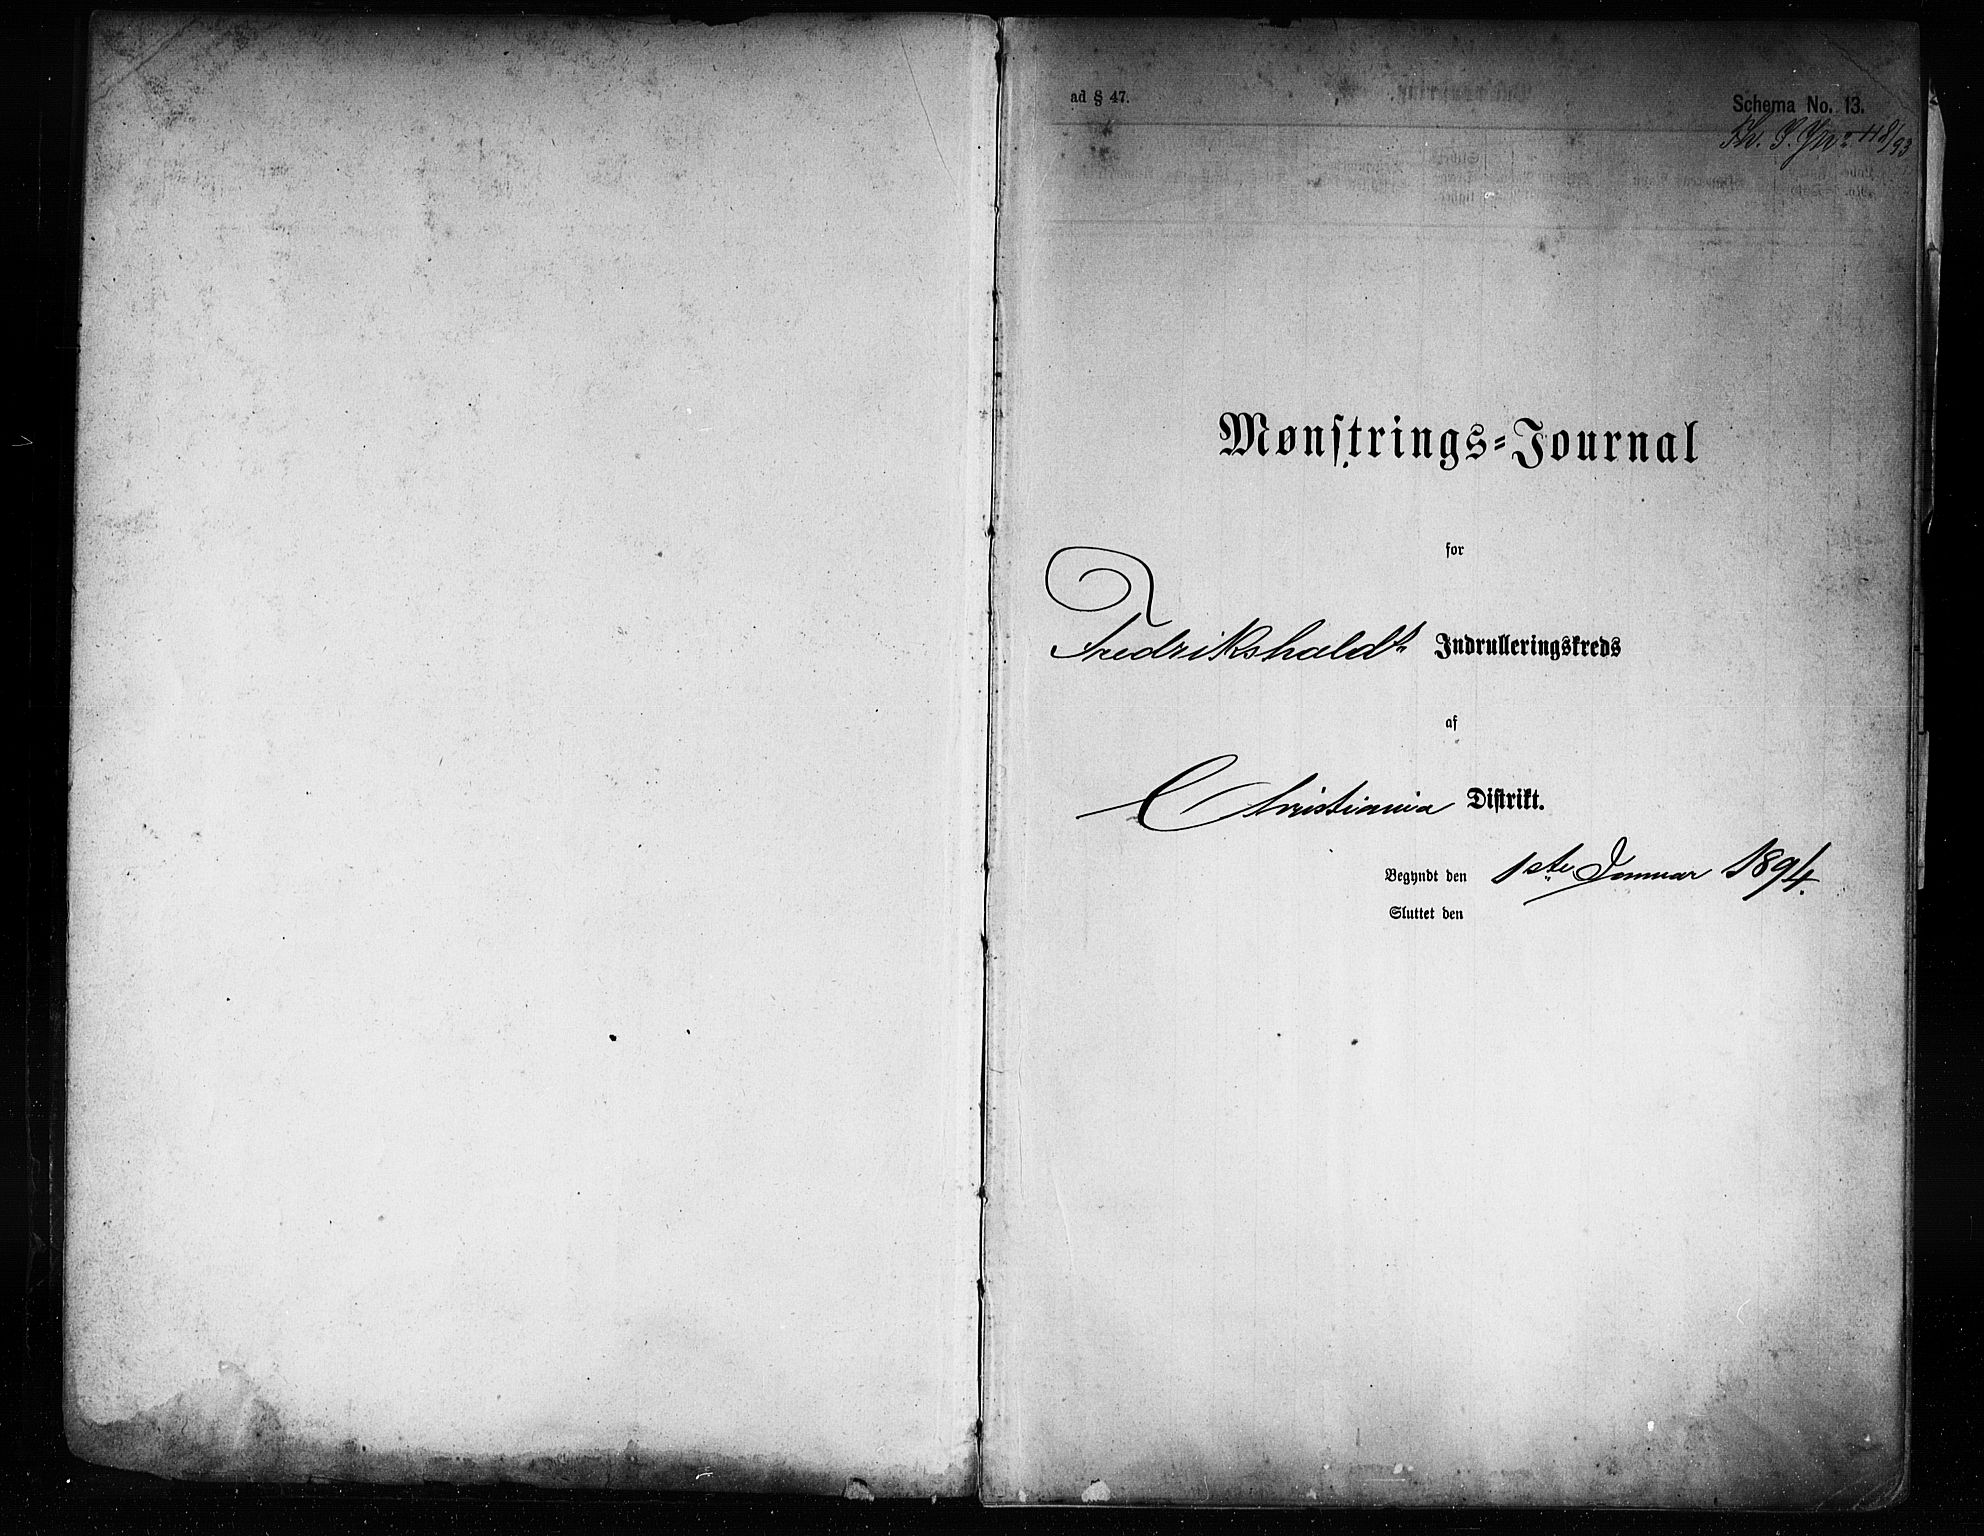 ad § 47.
Schema No. 13.
Mønstrings-Journal
for
Fredrikshalds Indrulleringskreds
af
Christiania Distrikt.
Begyndt den 1ste Januar 1894.
Sluttet den